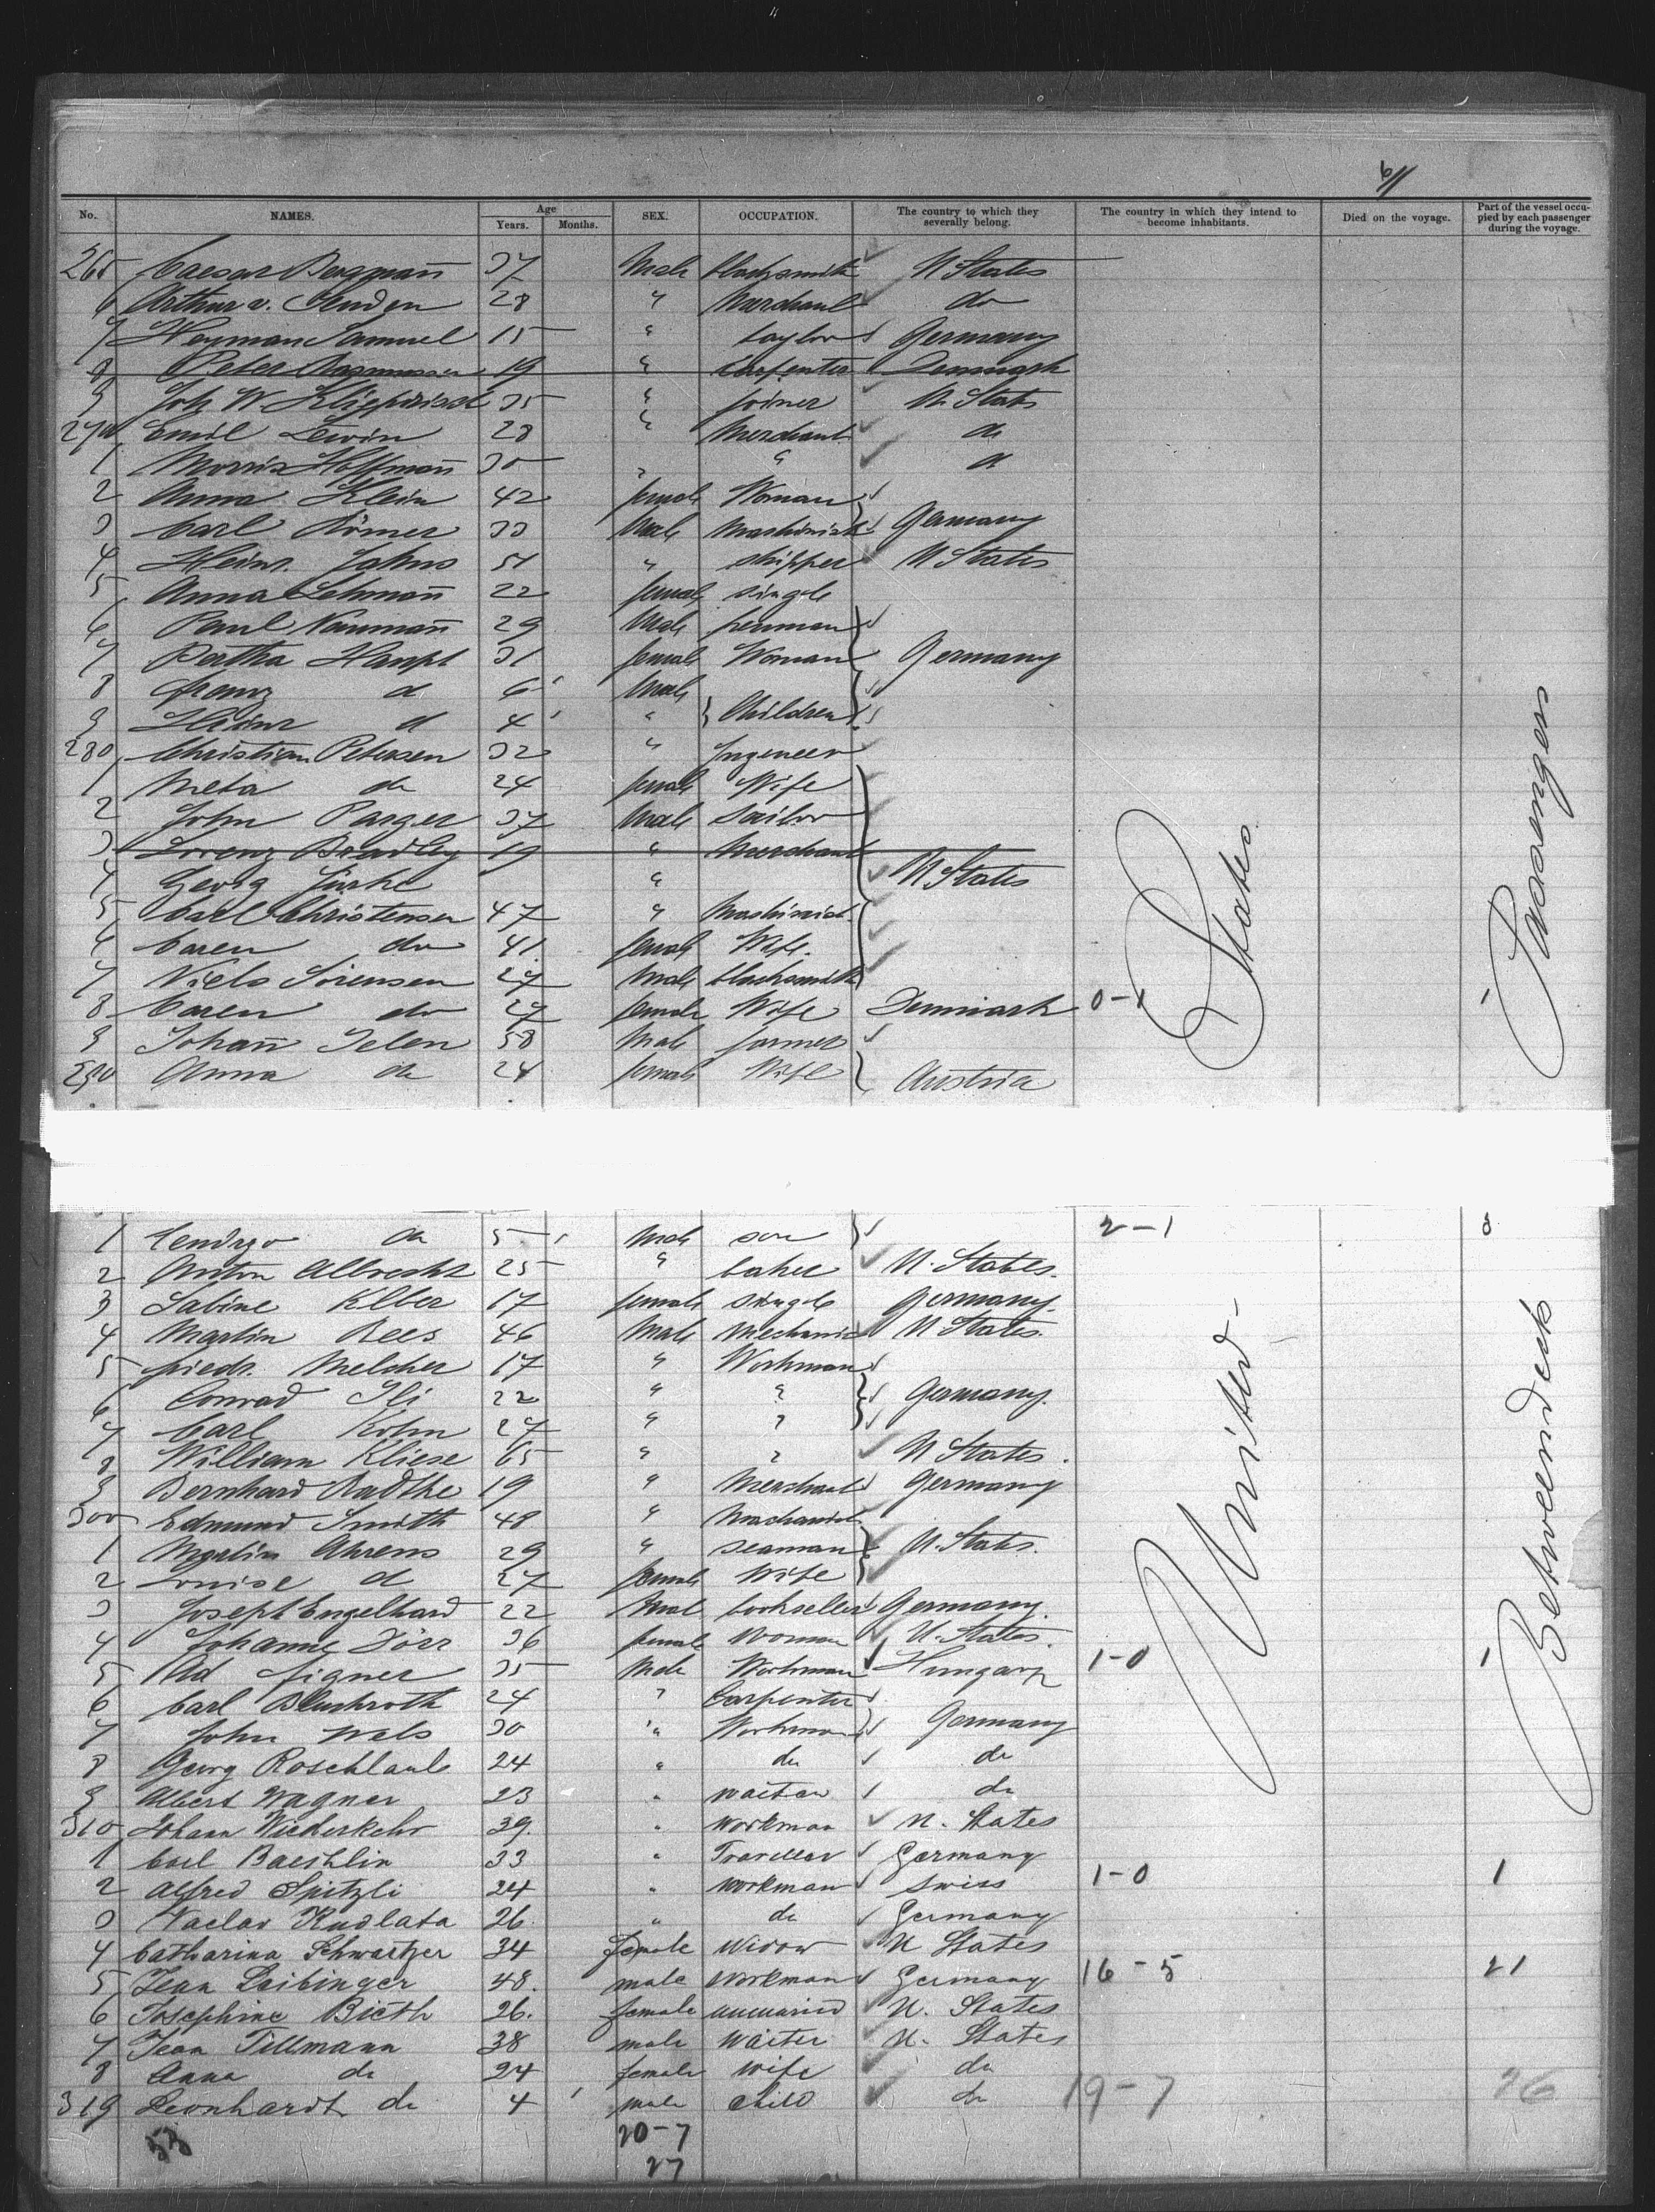 6/1
No. NAMES. Age SEX. OCCUPATION. The country to which they severally belong. The country in which they intend to become inhabitants. Died on the voyage. Part of the vessel occupied by each passenger during the voyage.
Years. Months.
265 Caesar Bergmañ 37 Male blacksmith U States
6 Arthur v. 28 " Merchant do
7 Heyman Samuel 15 " taylor Germany
8 Peter Rasmussen 19 " Carpenter Denmark
9 Joh W. 35 " joiner U. States
270 Emil Lewin 28 " Merchant do
1 Morris Hoffmañ 30 " " do
2 Anna Klein 42 female Woman
3 Carl Römer 33 Male Mashinist Germany
4 Heinr. Jahns 51 " skipper U States
5 Anna Lehmañ 22 female single
6 Paul Naumañ 29 Male penman
7 Bertha Haupt 31 female Woman Germany
8 Franz do 6 Male
9 Heinr d 4 " Children
280 Christian Petersen 32 " Ingeneer
1 Meta do 24 female Wife
2 John Parger 37 Male Sailor
3 Lorenz Bradley 19 " Merchant
4 Georg " U States
5 Carl Christensen 47 " Mashinist
6 Caren do 41 female Wife
7 Niels Sörensen 27 Male blacksmith
8 Caren do 27 female Wife Denmark 0-1 1
9 Johañ Jelen 58 Male farmer
290 Anna do 24 female Wife Austria
States
Passangers
1 do 5 Male son 2-1 3
2 Anton Albrecht 25 " baker U. States.
3 Sabine Klber 17 female single Germany.
4 Martin Rees 46 Male Mechanic U States.
5 friedr. Melcher 17 " Workman
6 Conrad Ili 22 " " Germany.
7 Carl Kohn 27 " "
8 William Kliese 65 " " U States.
9 Bernhard Radtke 19 " Merchant Germany
300 Edmund Smith 48 " Machanist
1 Martin Ahrens 29 " seaman U. States.
2 Louise d 27 female Wife
3 Joseph Engelhard 22 Male bookseller Germany.
4 Johanne Dörr 36 female Woman U. States.
5 Ad Signer 35 Male Workman Hungary 1-0 1
6 Carl 24 " Carpenter
7 John Wels 30 " Workman Germany
8 Georg Roschlaub 24 " do do
9 Albert Wagner 23 " waiter do
310 Johann Wiederkehr 39. " workman U. States
1 Carl Baechlin 33 " Traveller Germany
2 Alfred Spitzli 24 " workman swiss 1-0 1
3 Vaclav Kudlata 26. " do Germany
4 Catharina Schwartzer 34 female Widow U States
5 Jean Leibinger 48. male workman Germany 16-5 21
6 Josephine Bieth 26. female unmaried U. States
7 Jean Tillmann 38 male Waiter U. States
8 Anna do 24 female wife do
319 Leonhardt do 4 male child do 19-7 26
53 20-7
27
United
Betweendeck